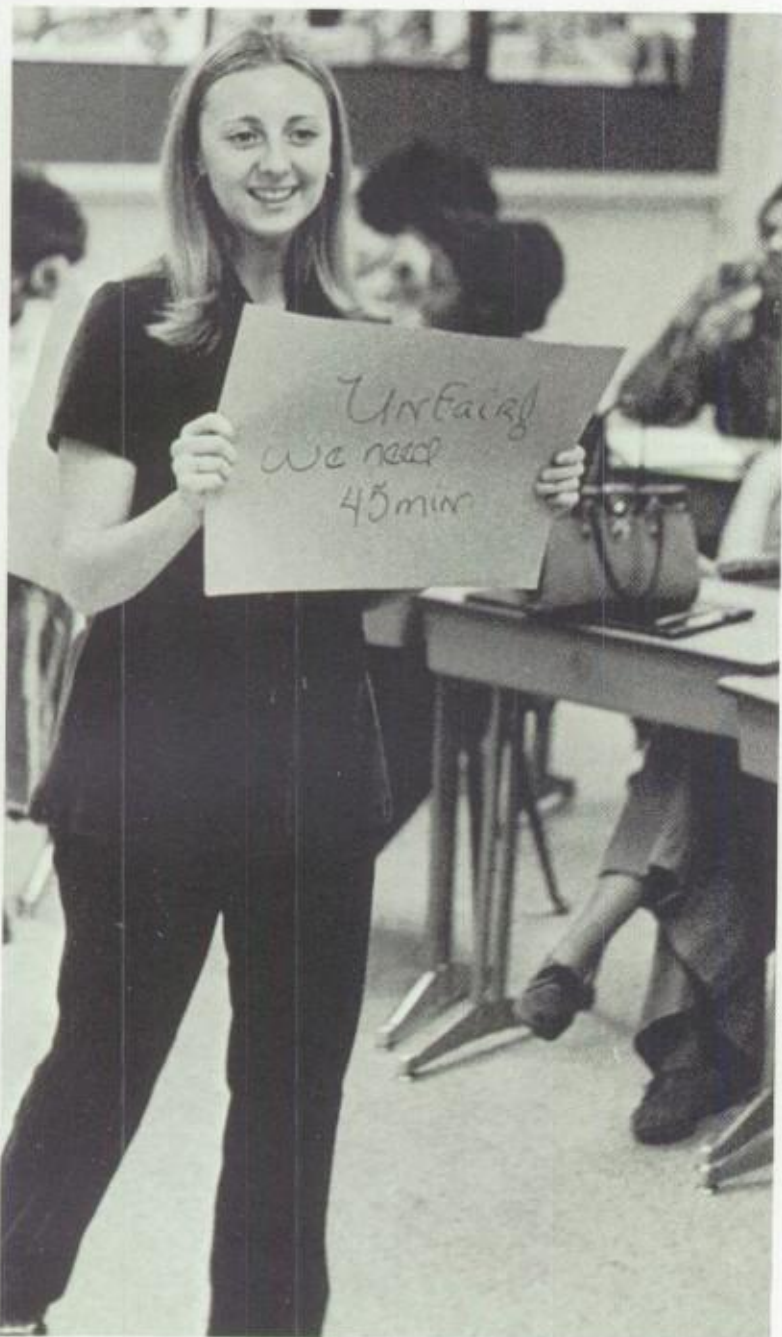 UnFair!
We need
45 min